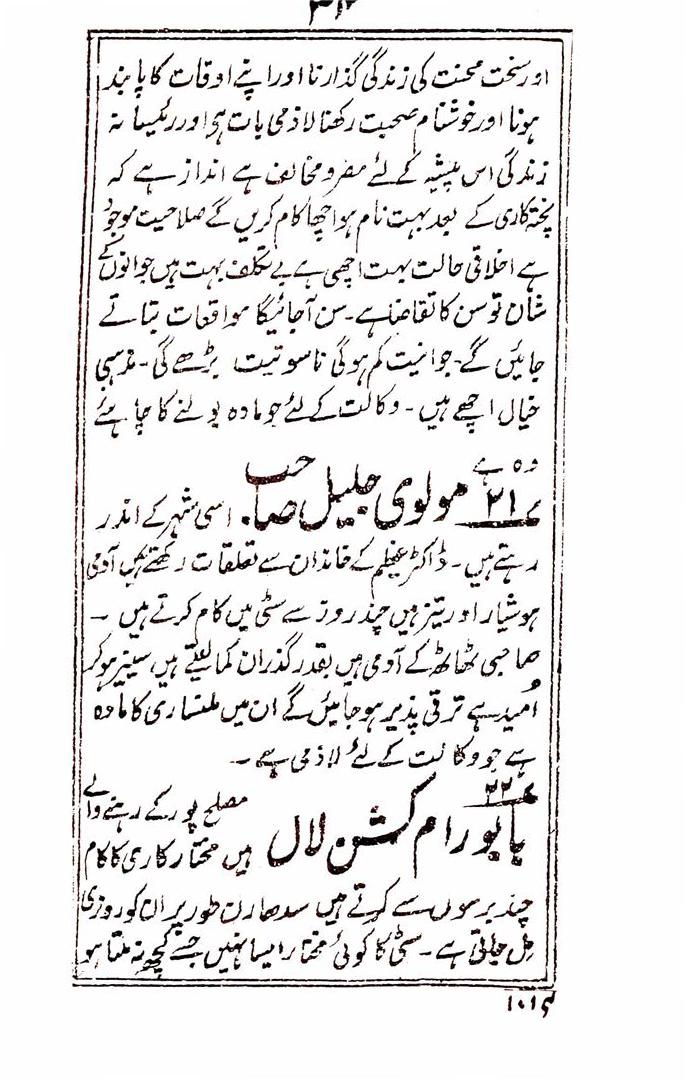 اور سخت محنت کی زندگی گذارنا اور اپنے اوقات کا پابند
ہونا اور خوشنام صحبت رکھنا لاذمی بات ہی اور رئیسانہ
زندگی اس پیشہ کے لئے مضر و مخالف ہے انداز ہے کہ
پختہ کاری کے بعد بہت نام ہو اچھا کام کریں گے صلاحیت موجود
ہے اخلاقی حالت بہت اچھی ہے بے تکلف بہت ہیں جوانوں کے
شان تو سن کا تقاضا ہے۔ سن آجائیگا مواقعات بتاتے
جائیں گے۔ جوانیت کم ہوگی ناسوتیت بڑھے گی۔ مذہبی
خیال اچھے ہیں۔ وکالت کے لئے جو مادہ بولنے کا چاہئے
وہ ہے
۲۱ مولوی جلیل صاحب۔ اسی شہر کے اندر
رہتے ہیں۔ ڈاکٹر عظیم کے خاندان سے تعلقات رکھتے ہیں آدمی
ہوشیار اور تیز ہیں چند روز سے سٹی میں کام کرتے ہیں ۔
صاحبی ٹھاٹھ کے آدمی ہیں بقدر گذران کما لیتے ہیں سینیر ہوکر
اُمید ہے ترقی پذیر ہو جائیں گے ان میں ملنساری کا مادہ
ہے جو وکالت کے لئے لاذمی ہے ۔
۲۲
بابو رام کشن لال مصلح پور کے رہنے والے
ہیں مختار کاری کا کام
چند برسوں سے کرتے ہیں سدھارن طور پر ان کو روزی
مل جاتی ہے۔ سٹی کا کوئی مختار ایسا نہیں جسے کچھ نہ ملتا ہو